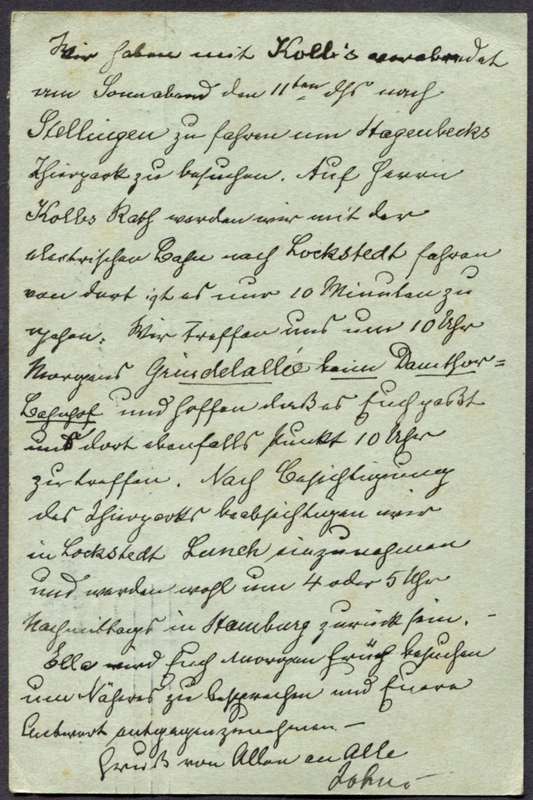 Wir haben mit Kolbe's verabredet
am Sonnabend den 11ten dss nach
Stellingen zu fahren um Hagenbecks
Thierpark zu besuchen. Auf Herrn
Kolbes Rath werden wir mit der
electrischen Bahn nach Lockstedt fahren
von dort ist es nur 10 Minuten zu
gehen. Wir treffen uns um 10 Uhr
Morgens Grindelallée beim Damthor-
Bahnhof und hoffen daß es Euch paßt
uns dort ebenfalls punkt 10 Uhr
zu treffen. Nach Besichtigung
des Thierparks beabsichtigen wir
in Lockstedt Lunch einzunehmen
und werden wohl um 4 oder 5 Uhr
Nachmittags in Hamburg zurück sein. -
Ella wird Euch morgen früh besuchen
um Näheres zu besprechen und Euere
Antwort entgegenzunehmen -
Gruß von Allen an Alle
John